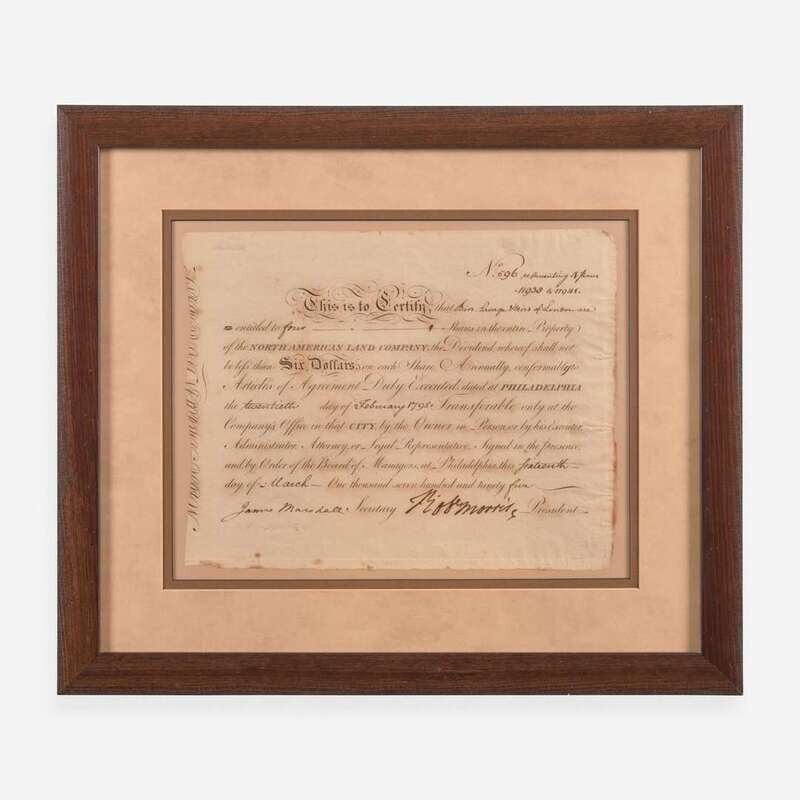 No. 596 representing 4 Shares
11938 a 11941.
This is to Certify, that
entitled to four Shares in the entire Property
of the NORTH AMERICAN LAND COMPANY, the Dividend whereof shall not
be less than Six Dollars, on each Share Annually, conformably to
Articles of Agreement Duly Executed, dated at PHILADELPHIA
the twentieth day of February 1795. Transferable only at the
Company's Office in that CITY, by the Owner, in Person, or by his Executor,
Administrator, Attorney, or Legal Representative. Signed in the presence,
and by Order of the Board of Managers, at Philadelphia, this sixteenth
day of March One thousand seven hundred and ninety five
James Marshall Secretary Robt Morris President